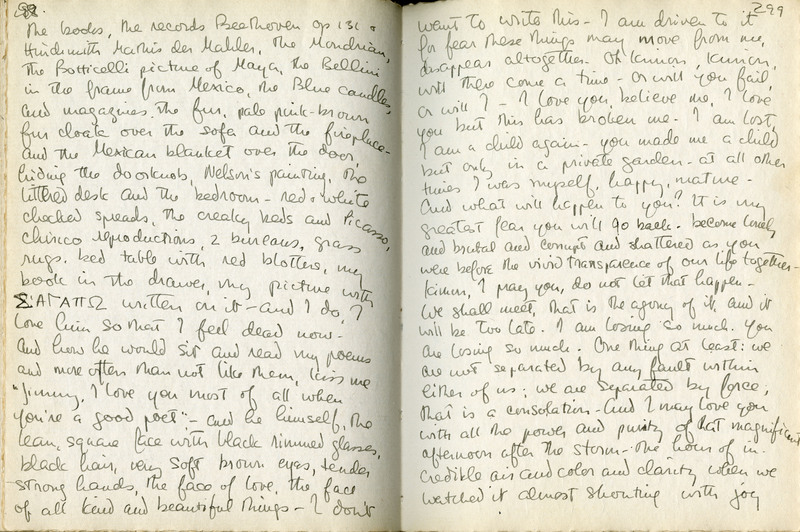 298.
The books, the records Beethoven Op 131 &
Hindemith Mathis der Mahler, the Mondrian,
The Botticelli picture of Mayer, the Bellini
in the frame from Mexico, the Blue candles,
and magazines. The fur, pale pink-brown
fur cloak over the sofa and the fireplace-
and the Mexican blanket over the door,
hiding the doorknob, Nelson's painting, the
littered desk and the bedroom - red & white
checked spreads, the creaky beds and Picasso,
Chirico reproductions, 2 bureaus, grass
rugs. bed table with red blotters, my
book in the drawer, my picture with
Σ'ΑΓΑΠΩ written on it - and I do, I
love him so that I feel dead now -
and how he would sit and read my poems
and more often than not like them, kiss me
"Jimmy, I love you most of all when
you're a good poet" - and he himself, the
lean, square face with black rimmed glasses,
black hair, very soft brown eyes, tender
strong hands, the face of love, the face
of all kind and beautiful things - I don't
299
want to write this - I am driven to it
for fear these things may move from me,
disappear altogether. Oh Kimon, Kimon,
will there come a time - or will you fail,
or will I - I love you, believe me, I love
you but this has broken me. I am lost,
I am a child again - you made me a child
but only in a private garden - at all other
times I was myself, happy, mature -
And what will happen to you? It is my
greatest fear you will go back - become lonely
and brutal and corrupt and shattered as you
were before the vivid transparence of our life together -
Kimon, I pray you, do not let that happen -
We shall meet, that is the agony of it, and it
will be too late. I am losing so much. You
are losing so much. One thing at least: we
are not separated by any fault within
either of us; we are separated by force,
that is a consolation - And I may love you
with all the power and purity of that magnificent
afternoon after the storm - the hour of in-
credible air and color and clarity when we
watched it almost shouting with joy